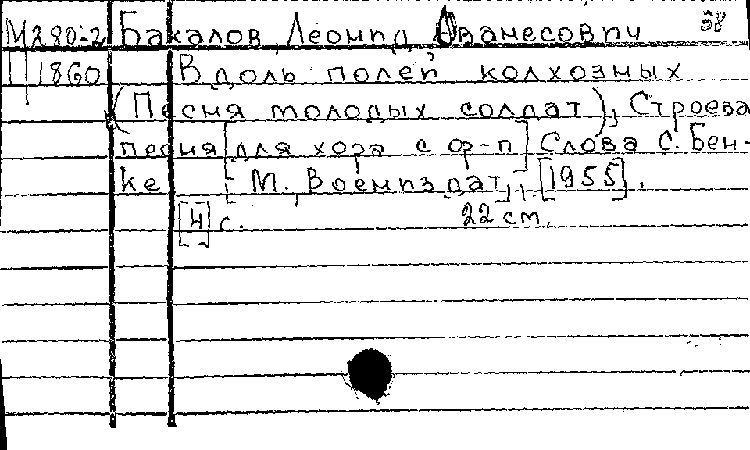 М280-2 Бакалов, Леонид Ованесович 38
П1860 Вдоль полей колхозных
(Песня молодых солдат). Строевая
песня [для хора с ф-п] Слова С. Бен-
ке М., Воениздат, [1955].
[4] с. 22 см.